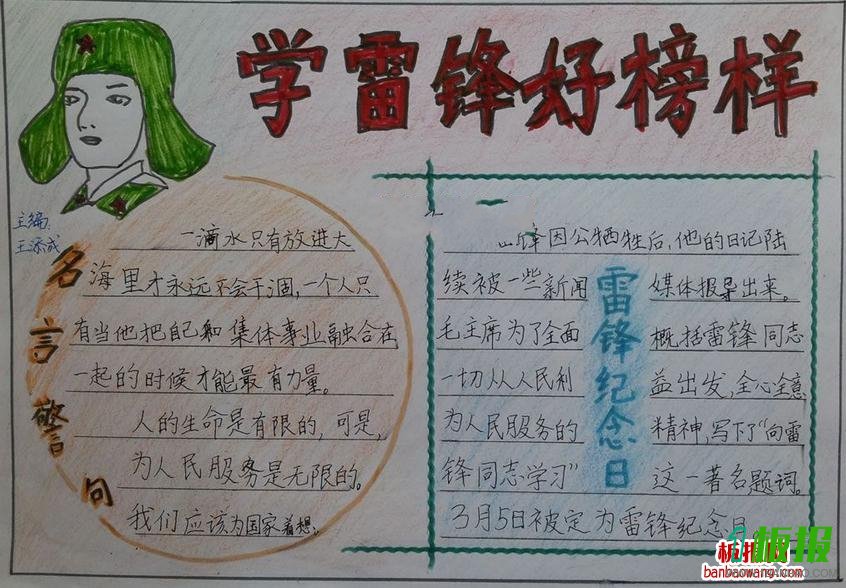 学雷锋好榜样
主编:
王添成
名言警句
一滴水只有放进大
海里才永远不会干涸,一个人只
有当他把自己和集体事业融合在
一起的时候才能最有力量。
人的生命是有限的,可是,
为人民服务是无限的。
我们应该为国家着想。
雷锋纪念日
锋因公牺牲后,他的日记陆
续被一些新闻媒体报导出来。
毛主席为了全面概括雷锋同志
一切从人民利益出发,全心全意
为人民服务的精神,写下了“向雷
锋同志学习”这一著名题词。
3月5日被定为雷锋纪念日
板报
banbaowang.com